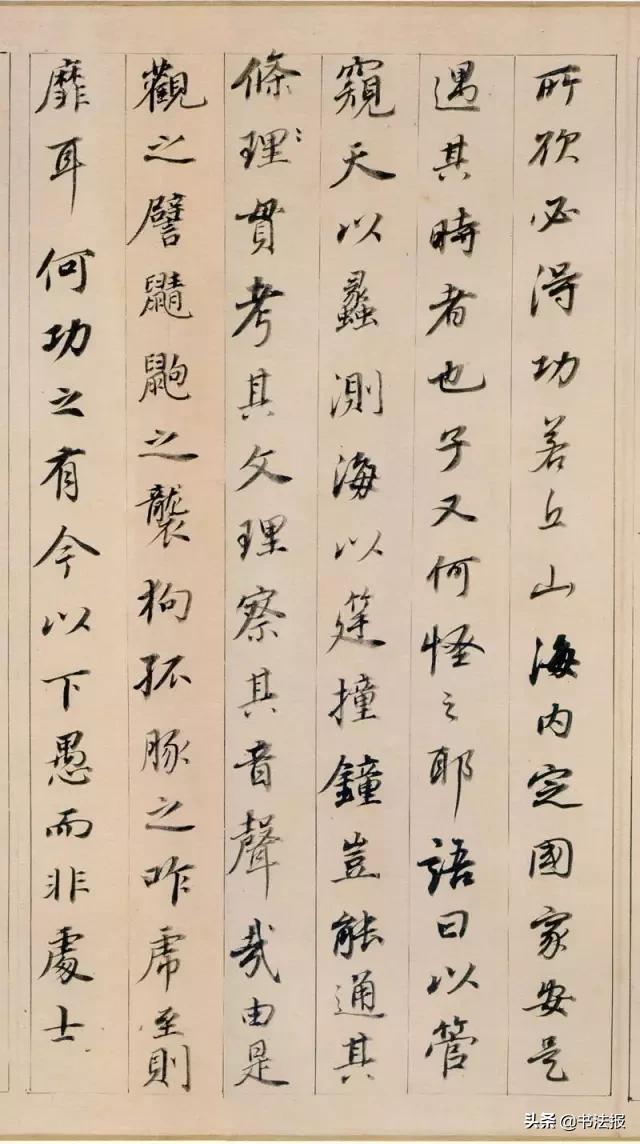 所欲必得功若丘山海内定國家安是
遇其時者也子又何怪之耶語曰以管
窺天以蠡測海以筳撞鐘豈能通其
條理貫考其文理察其音聲哉由是
觀之譬鼱鼩之襲狗孤豚之咋虎至則
靡耳何功之有今以下愚而非處士
头条 @书法报